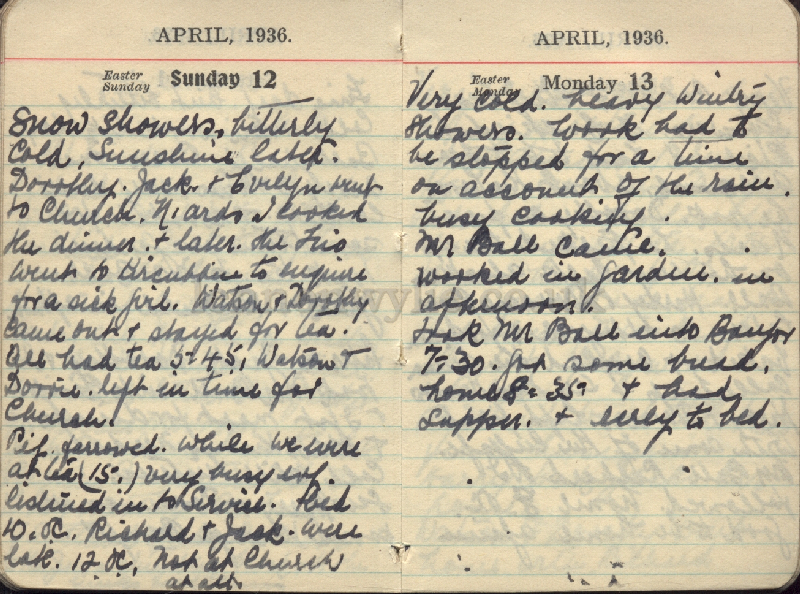 APRIL, 1936.
Easter Sunday Sunday 12
Snow showers, bitterly
Cold, Sunshine later.
Dorothy. Jack. & Evelyn went
to Church. N. and I cooked
the dinner. & later. the Trio
went to to enquire
for a sick girl. Watson & Dorothy
came out & stayed for tea.
All had tea 5-45, Watson &
Dorrie. left in time for
Church.
Pig. farrowed. while we were
at tea (15.) very busy evg.
listened in to Service. Bed
10. oc. Richard & Jack. were
late. 12 oc, not at Church
at all.
APRIL, 1936.
Easter Monday Monday 13
Very cold. heavy Wintry
showers. Work had to
be stopped for a time
on account of the rain.
busy cooking.
Mr Ball came.
worked in garden. in
afternoon.
took Mr Ball into Bangor
7-30. got some bread.
home 8-35. & had
supper. & early to bed.